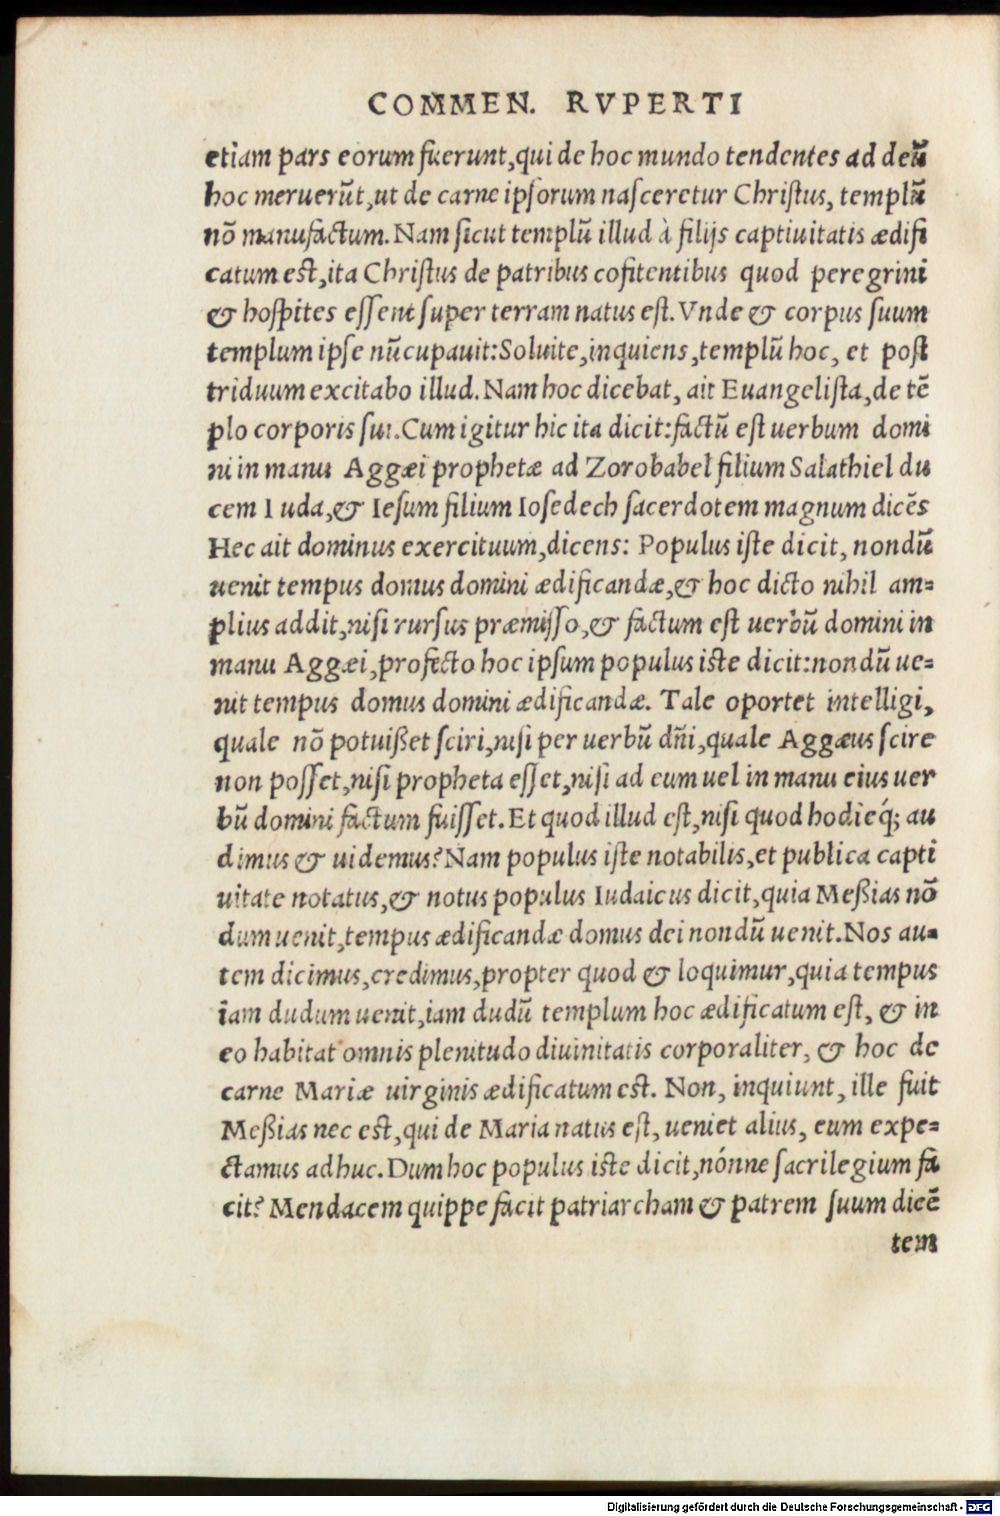 COMMEN. RVPERTI
etiam pars eorum fuerunt,qui de hoc mundo tendentes ad deũ
hoc meruerũt,ut de carne ipſorum naſceretur Chriſtus, templũ
nõ manufactum. Nam ſicut templũ illud à filijs captiuitatis ædifi
catum est,ita Chriſtus de patribus cõfitentibus quod peregrini
& hoſpites eſſent ſuper terram natus eſt. Vnde & corpus ſuum
templum ipſe nũcupauit:Soluite,inquiens,templũ hoc, et poſt
triduum excitabo illud. Nam hoc dicebat, ait Euangeliſta,de tẽ
plo corporis ſui.Cum igitur hic ita dicit:factũ eſt uerbum domi
ni in manu Aggæi prophetæ ad Zorobabel filium Salathiel du
cem Iuda,& Ieſum filium Ioſedech ſacerdotem magnum dicẽs
Hec ait dominus exercituum,dicens: Populus iſte dicit, nondũ
uenit tempus domus domini ædificandæ,& hoc dicto nihil am=
plius addit,niſi rurſus præmiſſo,& factum eſt uerbũ domini in
manu Aggæi,profecto hoc ipſum populus iste dicit:nondũ ue=
nit tempus domus domini ædificandæ. Tale oportet intelligi,
quale nõ potuißet ſciri,niſi per uerbũ dñi,quale Aggæus ſcire
non poſſet,niſi propheta eſſet,niſi ad eum uel in manu eius uer
bũ domini factum fuiſſet. Et quod illud eſt,niſi quod hodieq́; au
dimus & uidemus? Nam populus iſte notabilis,et publica capti
uitate notatus,& notus populus Iudaicus dicit,quia Meßias nõ
dum uenit,tempus ædificandæ domus dei nondũ uenit.Nos au=
tem dicimus,credimus,propter quod & loquimur,quia tempus
iam dudum uenit,iam dudũ templum hoc ædificatum eſt, & in
eo habitat omnis plenitudo diuinitatis corporaliter, & hoc de
carne Mariæ uirginis ædificatum est. Non, inquiunt, ille fuit
Meßias nec est,qui de Maria natus eſt, ueniet alius, eum expe=
ctamus adhuc. Dum hoc populus iste dicit,nónne ſacrilegium fa
cit? Mendacem quippe facit patriarcham & patrem ſuum dicẽ
tem
Digitalisierung gefördert durch die Deutsche Forschungsgemeinschaft - DFG